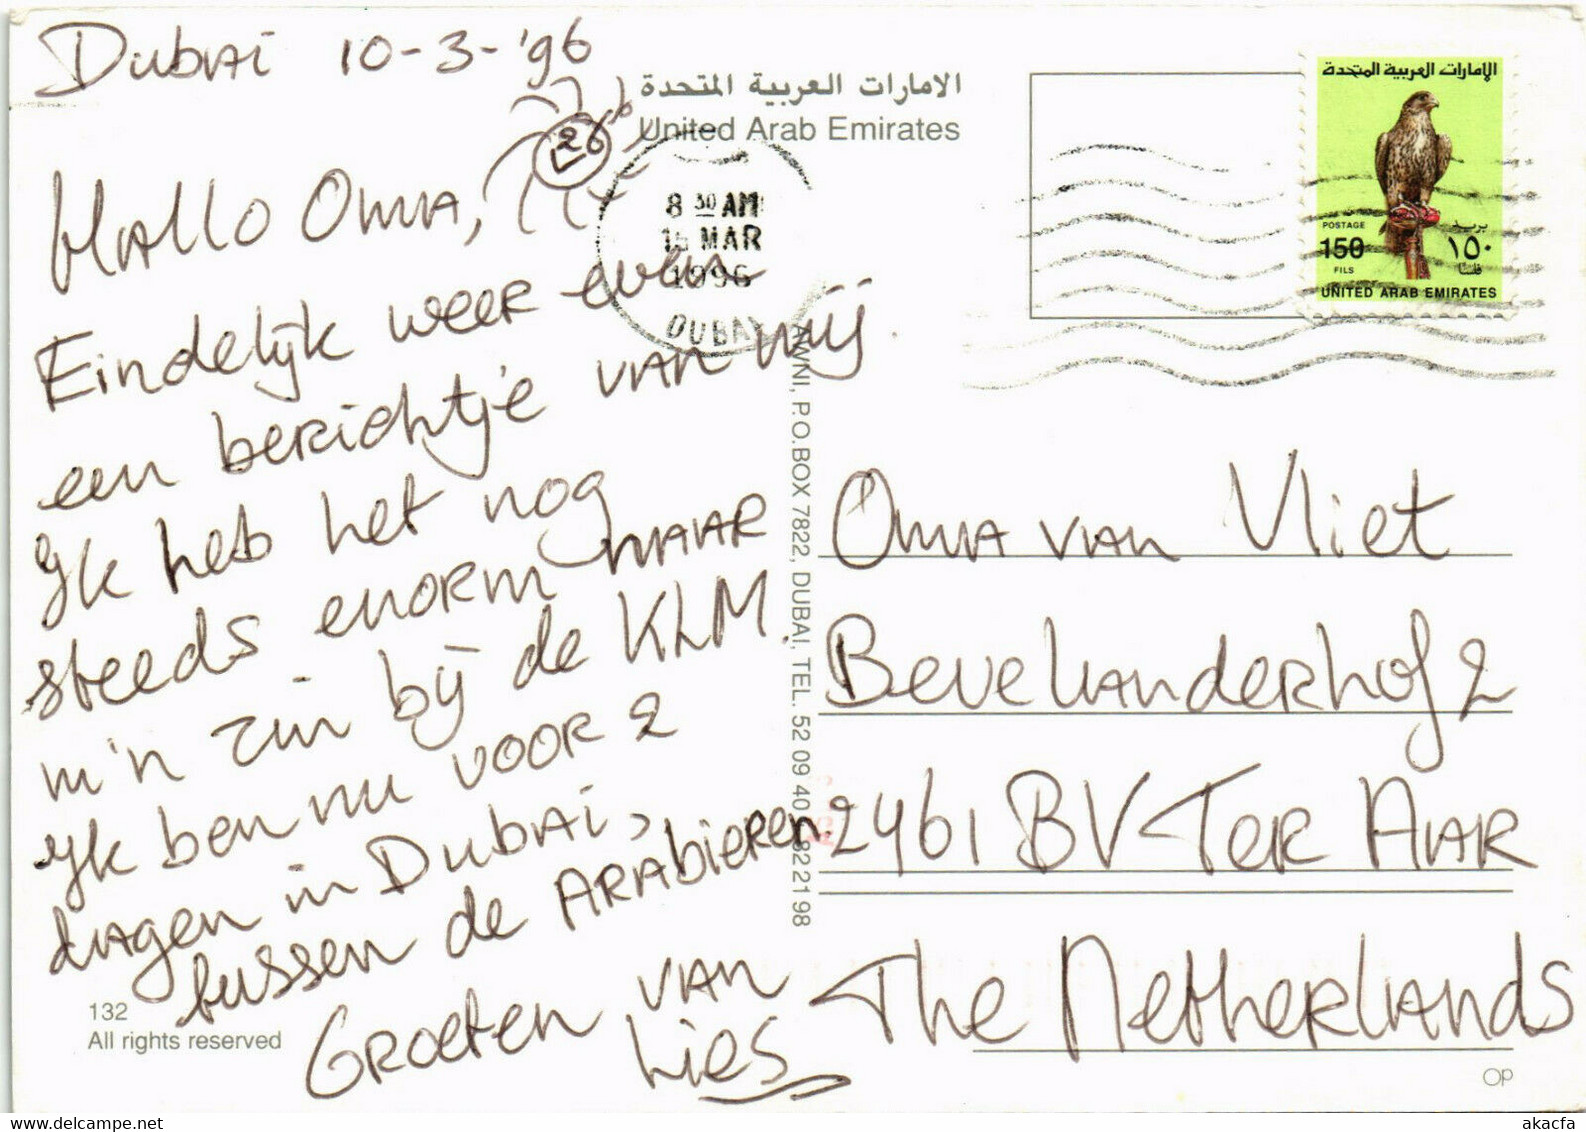 Dubai 10-3-'96
الامارات العربية المتحدة
United Arab Emirates
Hallo Oma,
26°
Eindelijk weer even
een berichtje van mij.
Ik heb het nog
steeds enorm naar
m'n zin bij de KLM.
Ik ben nu voor 2
dagen in Dubai,
tussen de Arabieren
Groeten van
Lies
132
All rights reserved
8 30 AM
MAR
1996
DUBAI
AWNI, P.O.BOX 7822, DUBAI, TEL. 52 09 40
82 21 98
الامارات العربية المتحدة
POSTAGE
150
FILS
بريد
١٥٠
فلسا
UNITED ARAB EMIRATES
Oma van Vliet
Bevelanderhof 2
2461 BV Ter Aar
The Netherlands
Op
www.delcampe.net
akacfa